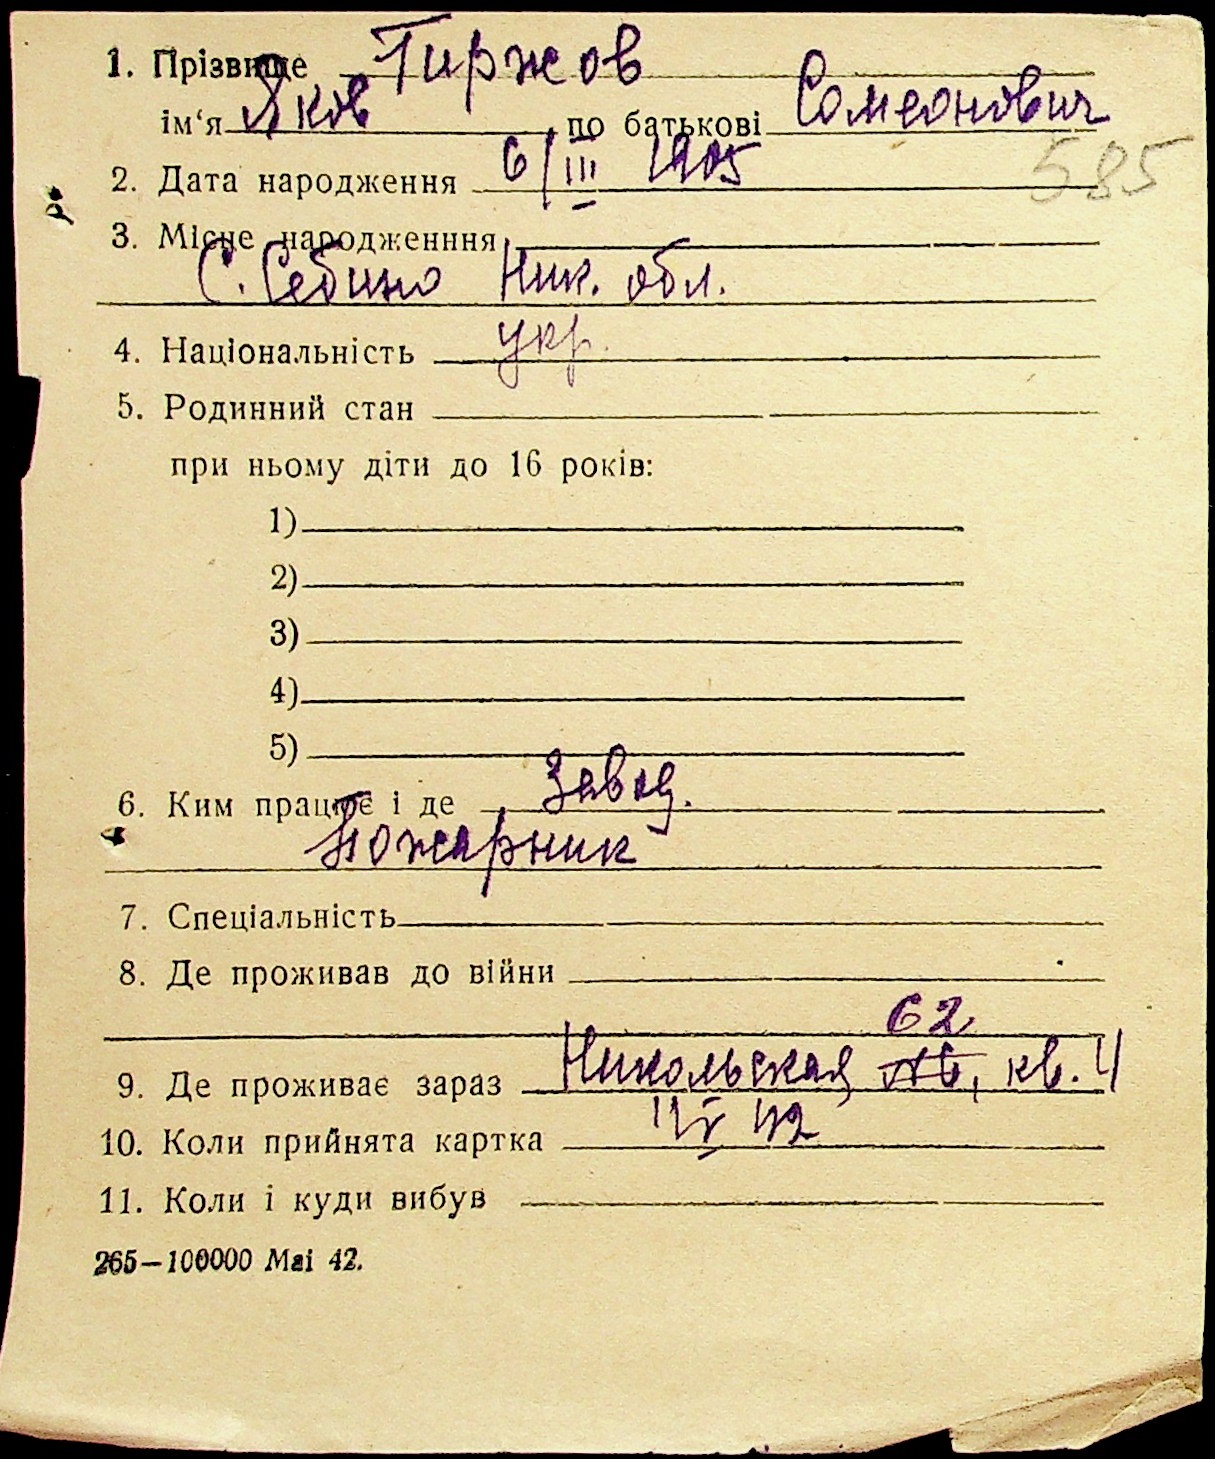 1. Прізвище Тиржов
ім‘я Яков по батькові Сомеонович
2. Дата народження 6/III 1905
585
3. Місце народженння
С. Себино Ник. обл.
4. Національність укр.
5. Родинний стан
при ньому діти до 16 років:
1)
2)
3)
4)
5)
6. Ким працює і де Завод.
Пожарник
7. Спеціальність
8. Де проживав до війни
62
9. Де проживає зараз Никольская, кв. 4
10. Коли прийнята картка 42
11. Коли і куди вибув
265—100000 Mai 42.